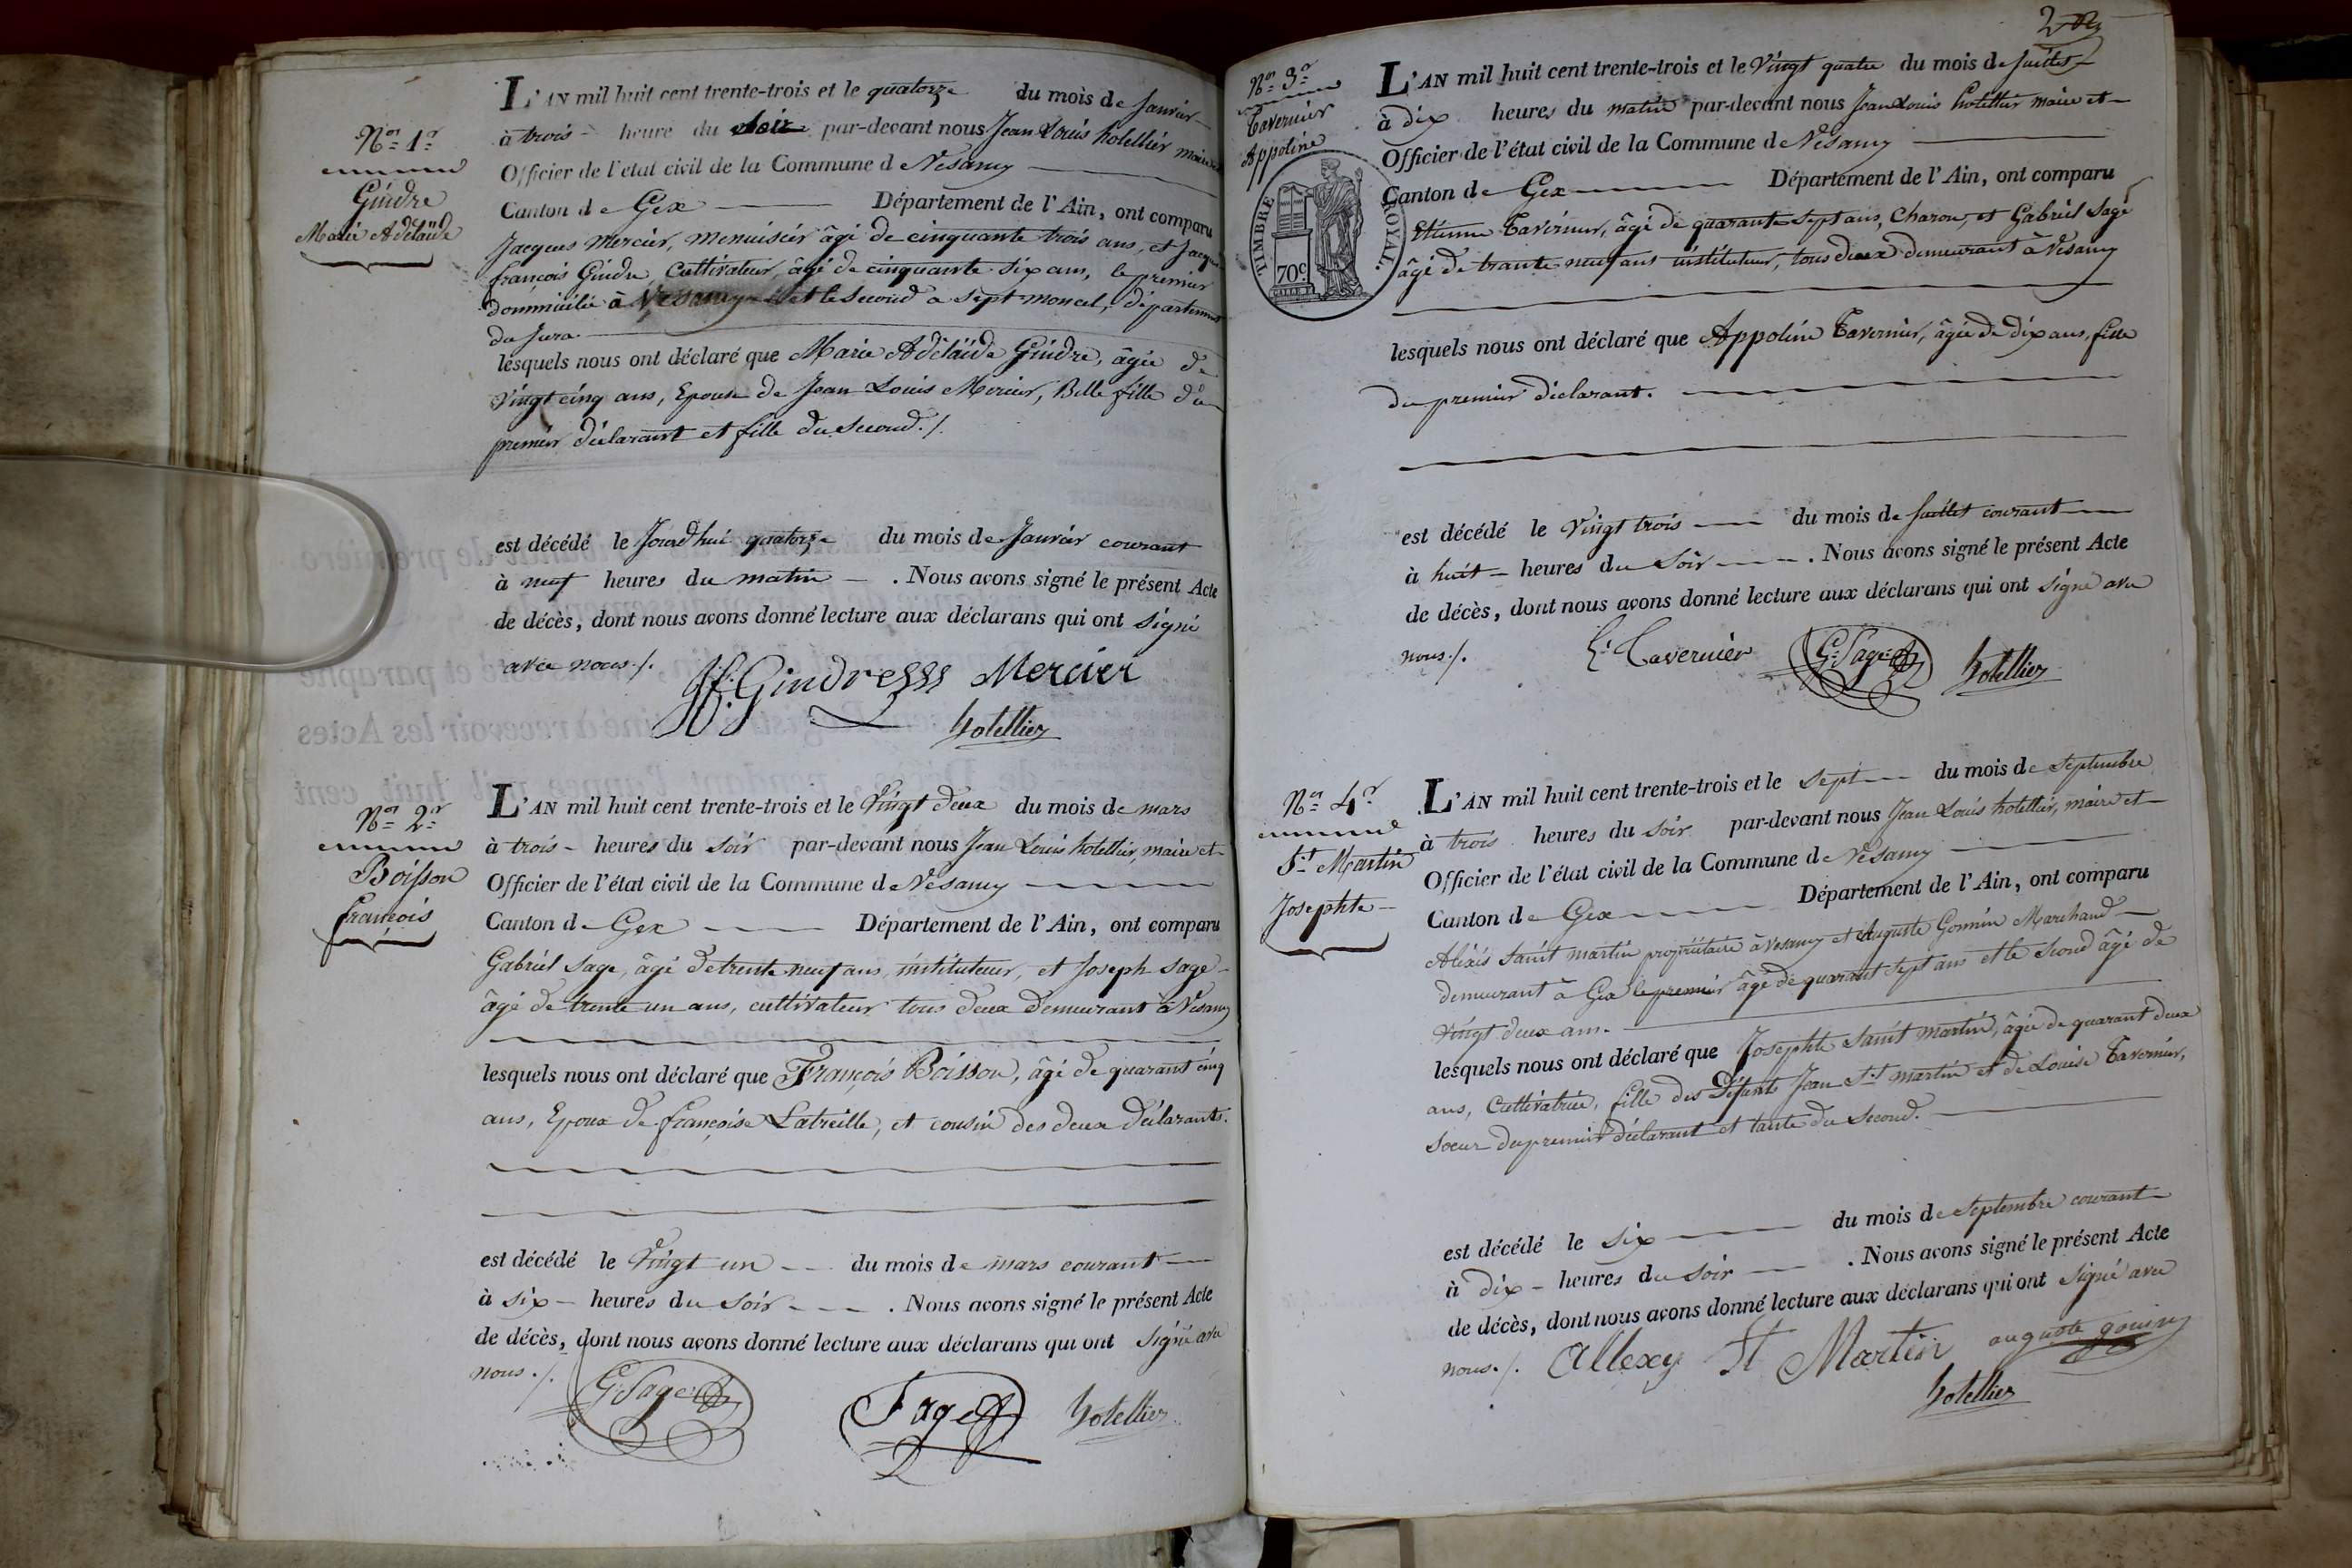 Nor 1r
Gindre
Marie Adélaïde
L'AN mil huit cent trente-trois et le quatorze du mois de Janvier
à trois heure du soir par-devant nous Jean Louis hotellier maire et
Officier de l'état civil de la Commune de Vesancy
Canton de Gex Département de l'Ain, ont comparu
Jacques Mercier, menuisier âgé de cinquante trois ans, et Jacques
françois Gindre, Cultivateur, âgé de cinquante six ans, le premier
dommicilié à Vesancy et le second a sept moncel, département
du Jura
lesquels nous ont déclaré que Marie Adélaïde Gindre, âgée de
vingt cinq ans, Epouse de Jean Louis Mercier, Belle fille du
premier déclarant et fille du second./.
est décédé le Jourdhui quatorze du mois de Janvier courant
à neuf heures du matin . Nous avons signé le présent Acte
de décès, dont nous avons donné lecture aux déclarans qui ont signé
avec nous./.
Jf: Gindre Mercier
hotellier
Nor 2r
Boisson
françois
L'AN mil huit cent trente-trois et le Vingt deux du mois de mars
à trois heures du soir par-devant nous Jean Louis hotellier, maire et
Officier de l'état civil de la Commune de Vesancy
Canton de Gex Département de l'Ain, ont comparu
Gabriel Sage, âgé de trente neuf ans, instituteur, et Joseph Sage
âgé de trente un ans, cultivateur tous deux demeurant à Vesancy
lesquels nous ont déclaré que François Boisson, âgé de quarant cinq
ans, Epoux de françoise Latreille, et cousin des deux déclarants.
est décédé le Vingt un du mois de mars courant
à six heures du soir . Nous avons signé le présent Acte
de décès, dont nous avons donné lecture aux déclarans qui ont signé avec
nous./.
G: Sage Sage hotellier
2
Nor 3r
Tavernier
Appoline
TIMBRE ROYAL.
70c
L'AN mil huit cent trente-trois et le Vingt quatre du mois de Juillet
à dix heures du matin par-devant nous Jean Louis hotellier maire et
Officier de l'état civil de la Commune de Vesancy
Canton de Gex Département de l'Ain, ont comparu
Etienne Tavernier, âgé de quarante sept ans, Charon, et Gabriel Sage
âgé de trante neuf ans instituteur, tous deux demeurant à Vesancy
lesquels nous ont déclaré que Appoline Tavernier, âgée de dix ans, fille
du premier déclarant.
est décédé le Vingt trois du mois de Juillet courant
à huit heures du soir . Nous avons signé le présent Acte
de décès, dont nous avons donné lecture aux déclarans qui ont signé avec
nous./.
Tavernier G: Sage hotellier
Nor 4r
St Martin
Josephte
L'AN mil huit cent trente-trois et le sept du mois de Septembre
à trois heures du soir par-devant nous Jean Louis hotellier, maire et
Officier de l'état civil de la Commune de Vesancy
Canton de Gex Département de l'Ain, ont comparu
Alexis Saint martin propriétaire à Vesancy et Auguste Marchand
demeurant à Gex le premier âgé de quarant sept ans et le second âgé de
Vingt deux ans.
lesquels nous ont déclaré que Josephte Saint martin, âgée de quarant deux
ans, Cultivatrice, fille des défunts Jean St martin et de Louise Tavernier,
soeur du premier déclarant et tante du second.
est décédé le six du mois de Septembre courant
à dix heures du soir . Nous avons signé le présent Acte
de décès, dont nous avons donné lecture aux déclarans qui ont signé avec
nous./. Allexy St Martin auguste
hotellier